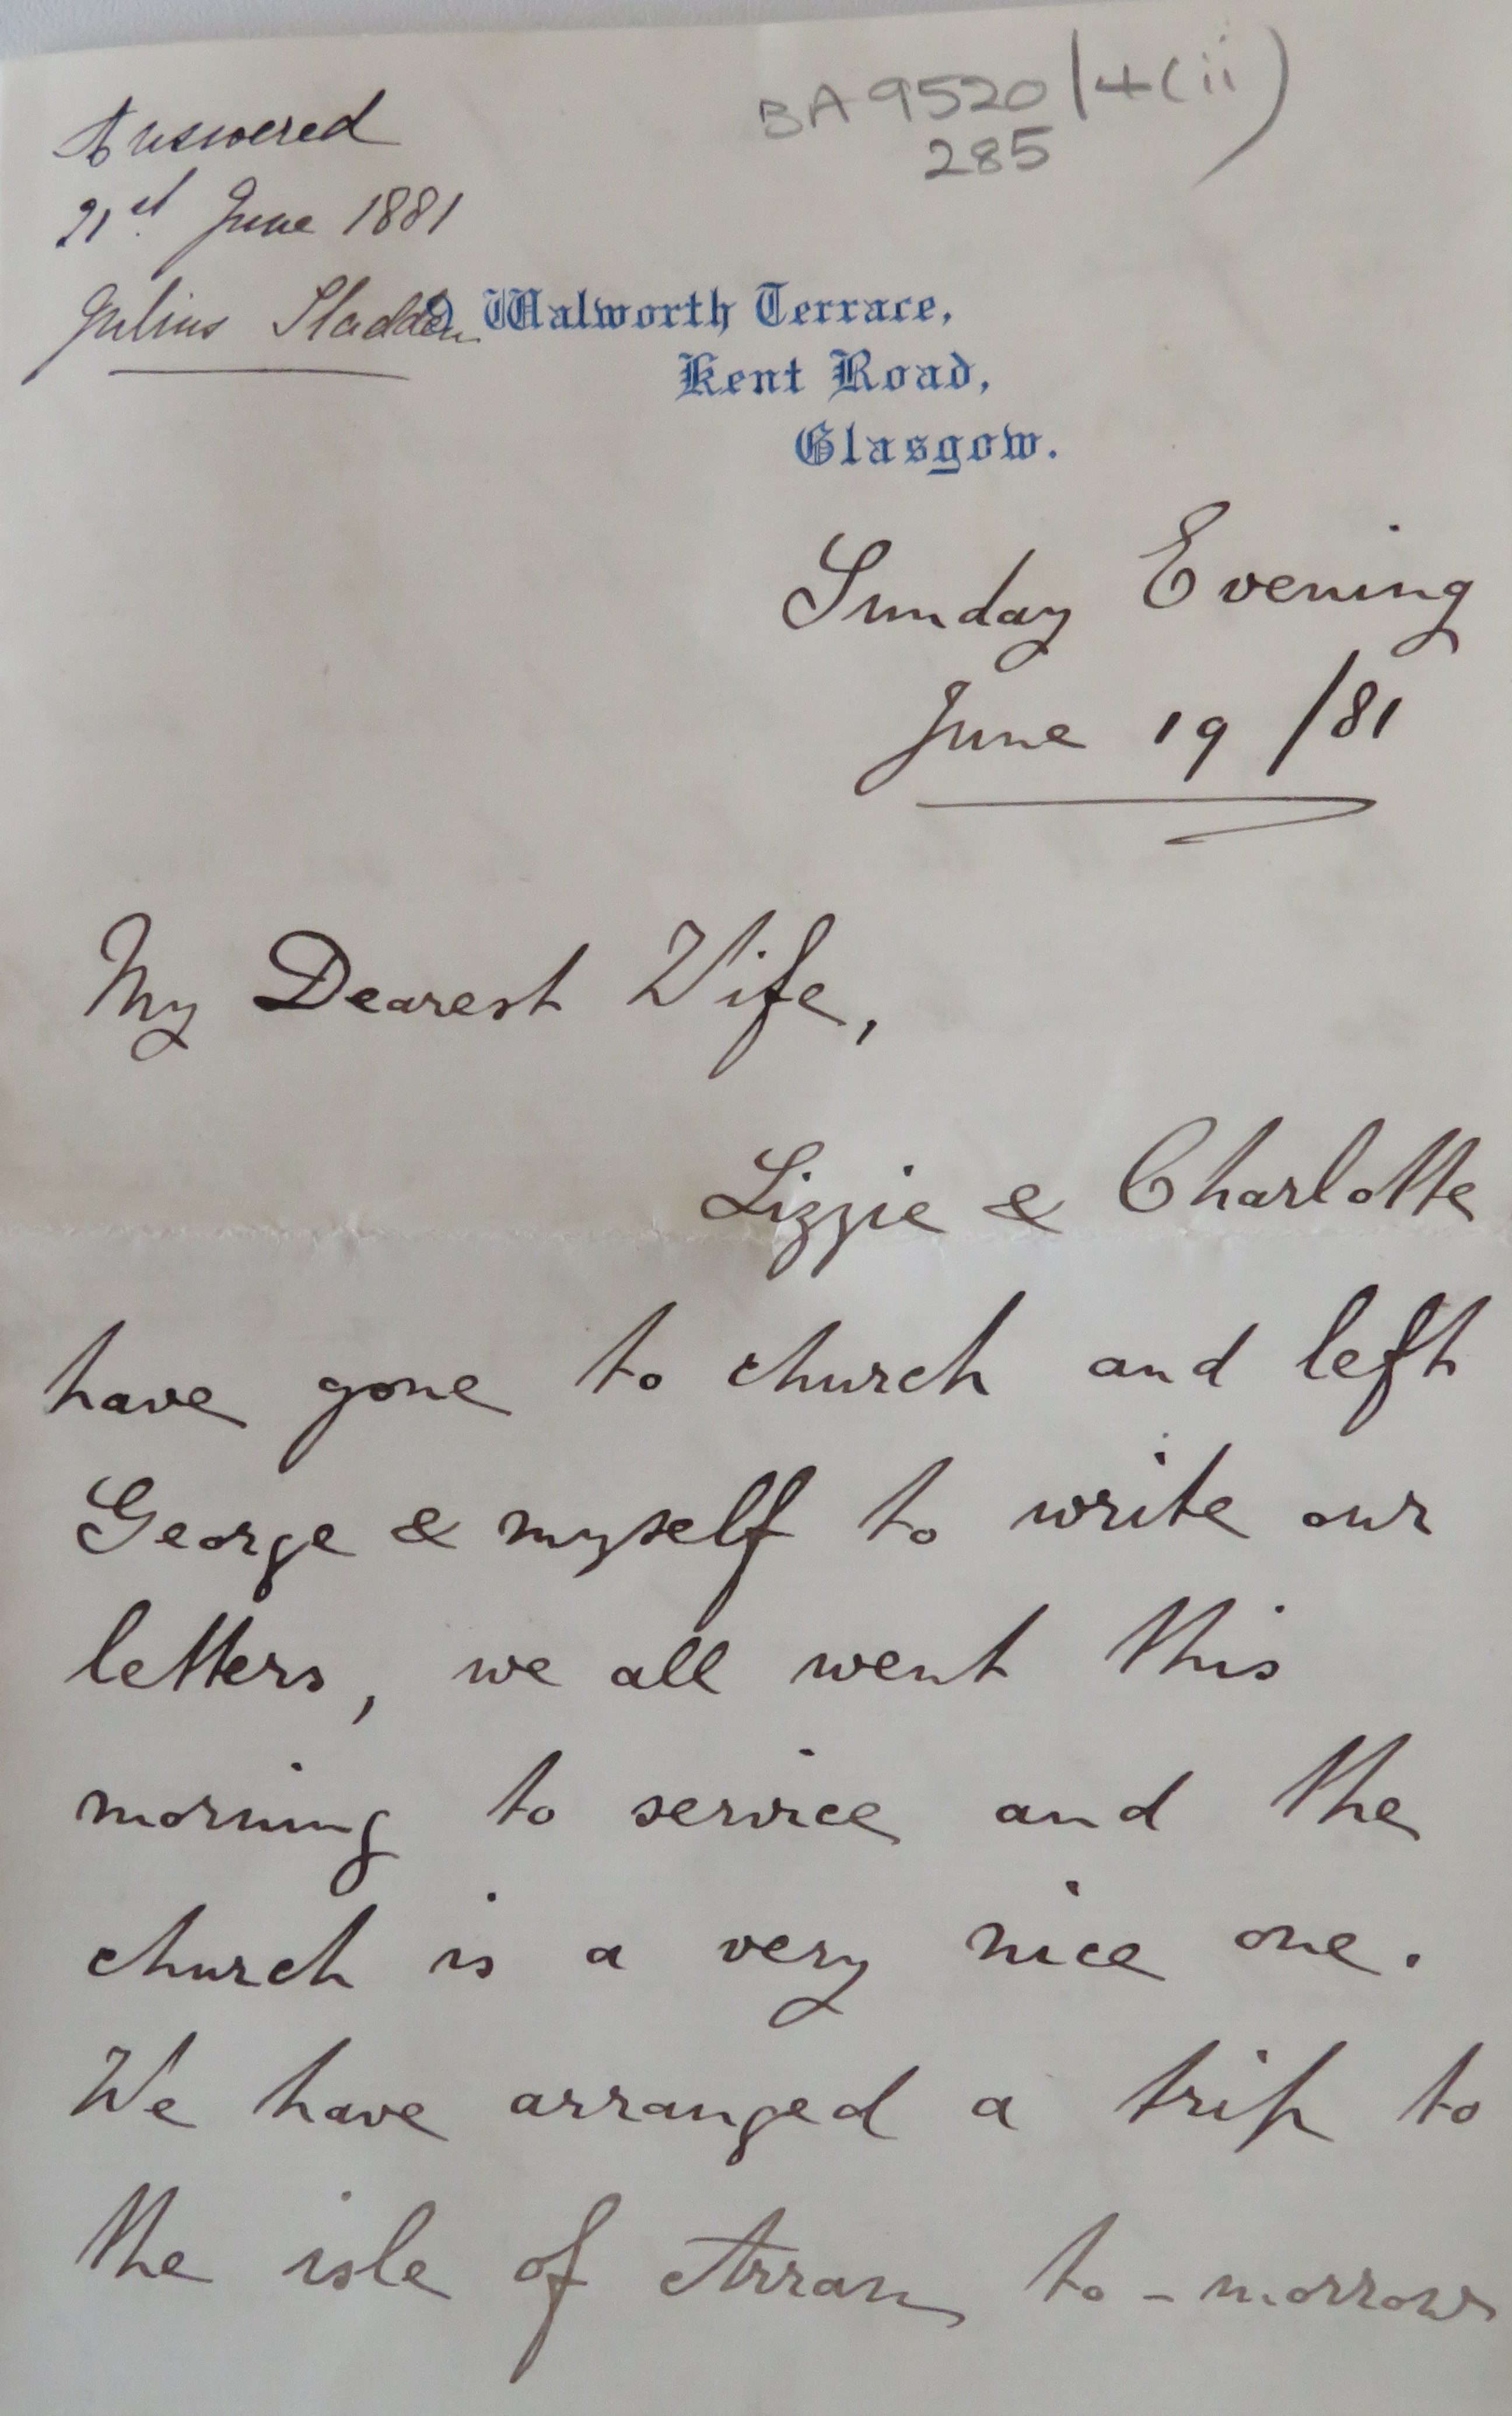 BA 9520/4(ii)
285
Answered
21st June 1881
Julius Sladden
9 Walworth Terrace,
Kent Road,
Glasgow.
Sunday Evening
June 19 /81
My Dearest Wife,
Lizzie & Charlotte
have gone to church and left
George & myself to write our
letters, we all went this
morning to service and the
church is a very nice one.
We have arranged a trip to
the isle of Arran to-morrow